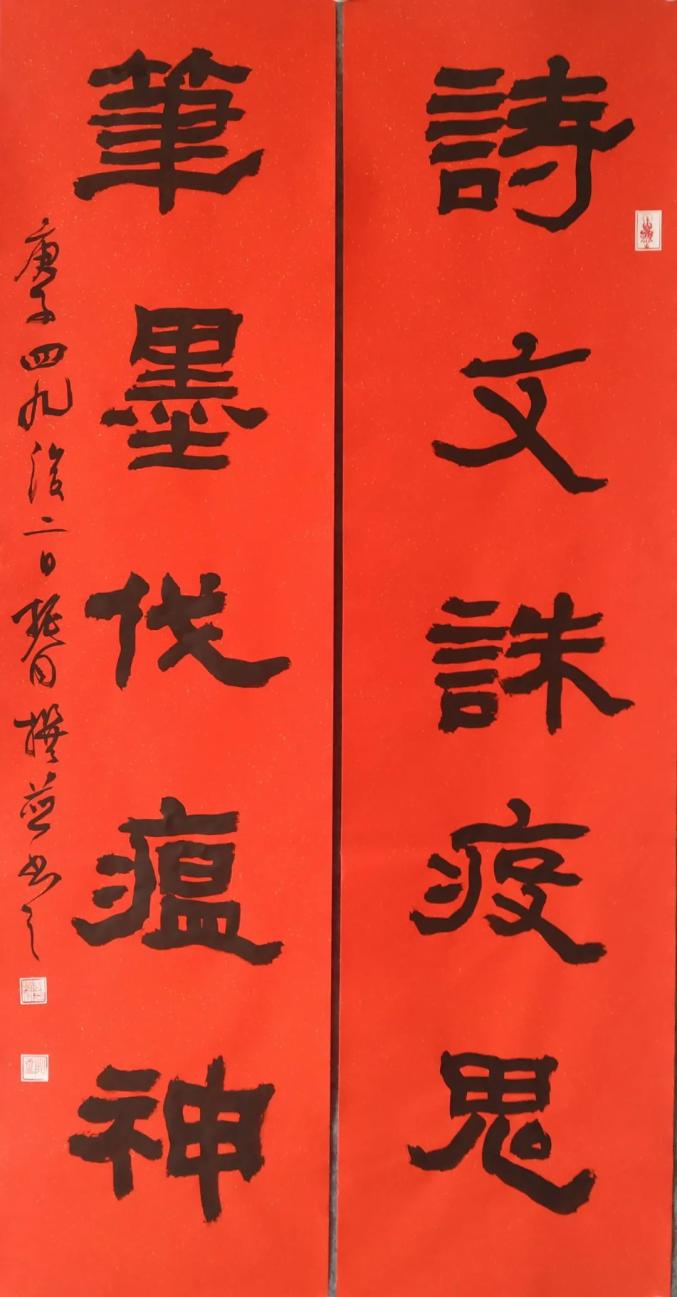 詩文誅疫鬼
筆墨伐瘟神
庚子四九後二日 撰並書之